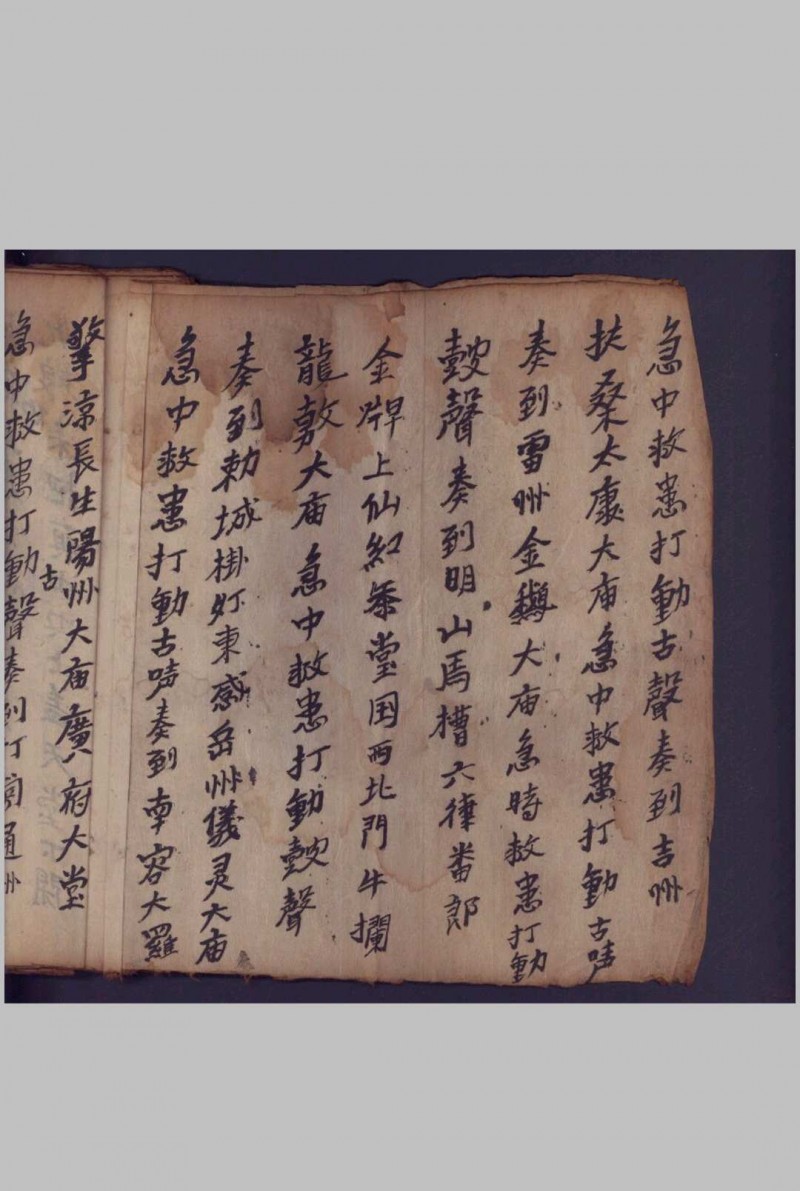 急中救患打動古聲奏到吉州
扶桑太康大庙急中救患打動古嗁
奏到雷州金鵝大庙急時救患打動
鼓聲奏到明山馬槽六律番郎
金牌上仙紅黍堂国西北門牛欄
龍敖大庙急中救患打動鼓聲
奏到勅城掛灯東感岳州儀灵大庙
急中救患打動古嗁奏到南容大羅
擎涼長生陽州大庙廣府大堂
急中救患打動古聲奏到丁通州